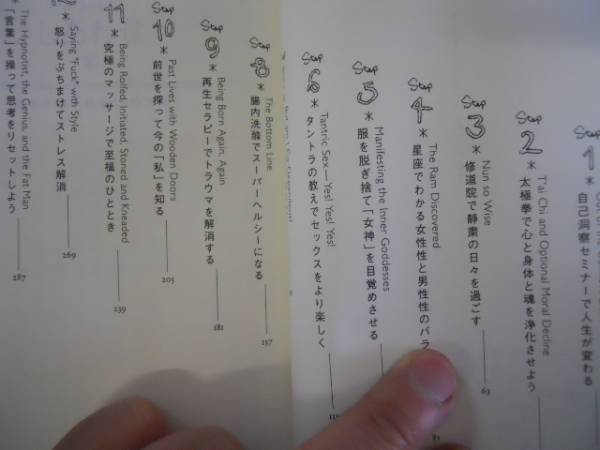 1
自己洞察セミナーで人生が変わる
Step
2
T'ai Chi and Optional Moral Decline
＊太極拳で心と身体と魂を浄化させよう
Step
3
Nun so Wise
＊修道院で静粛の日々を過ごす
63
Step
4
The Ram Discovered
＊星座でわかる女性性と男性性のバラ
81
Step
5
Manifesting the Inner Goddesses
＊服を脱ぎ捨て「女神」を目覚めさせる
Step
6
Tantric Sex — Yes! Yes! Yes!
＊タントラの教えでセックスをより楽しく
Step
8
The Bottom Line
＊腸内洗滌でスーパーヘルシーになる
157
Step
9
Being Born Again, Again
＊再生セラピーでトラウマを解消する
181
Step
10
Past Lives with Wooden Doors
＊前世を探って今の「私」を知る
205
Step
11
Being Rolfed, Initiated, Stoned and Kneaded
＊究極のマッサージで至福のひととき
239
Saying "Fuck" with Style
＊怒りをぶちまけてストレス解消
269
The Hypnotist, the Genius, and the Fat Man
＊「言葉」を操って思考をリセットしよう
287